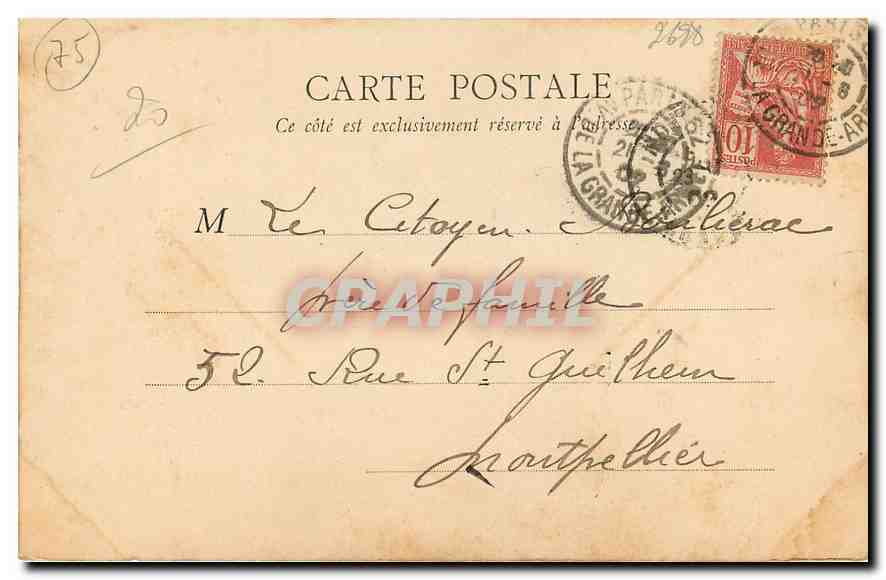 75
2698
20
CARTE POSTALE
Ce côté est exclusivement réservé à l'adresse
M Le Citoyen
père de famille
CPAPHIL
52. Rue St Guilhem
Montpellier
10
POSTES
PARIS
DE LA GRANDE AR
LA GRANDE-AR